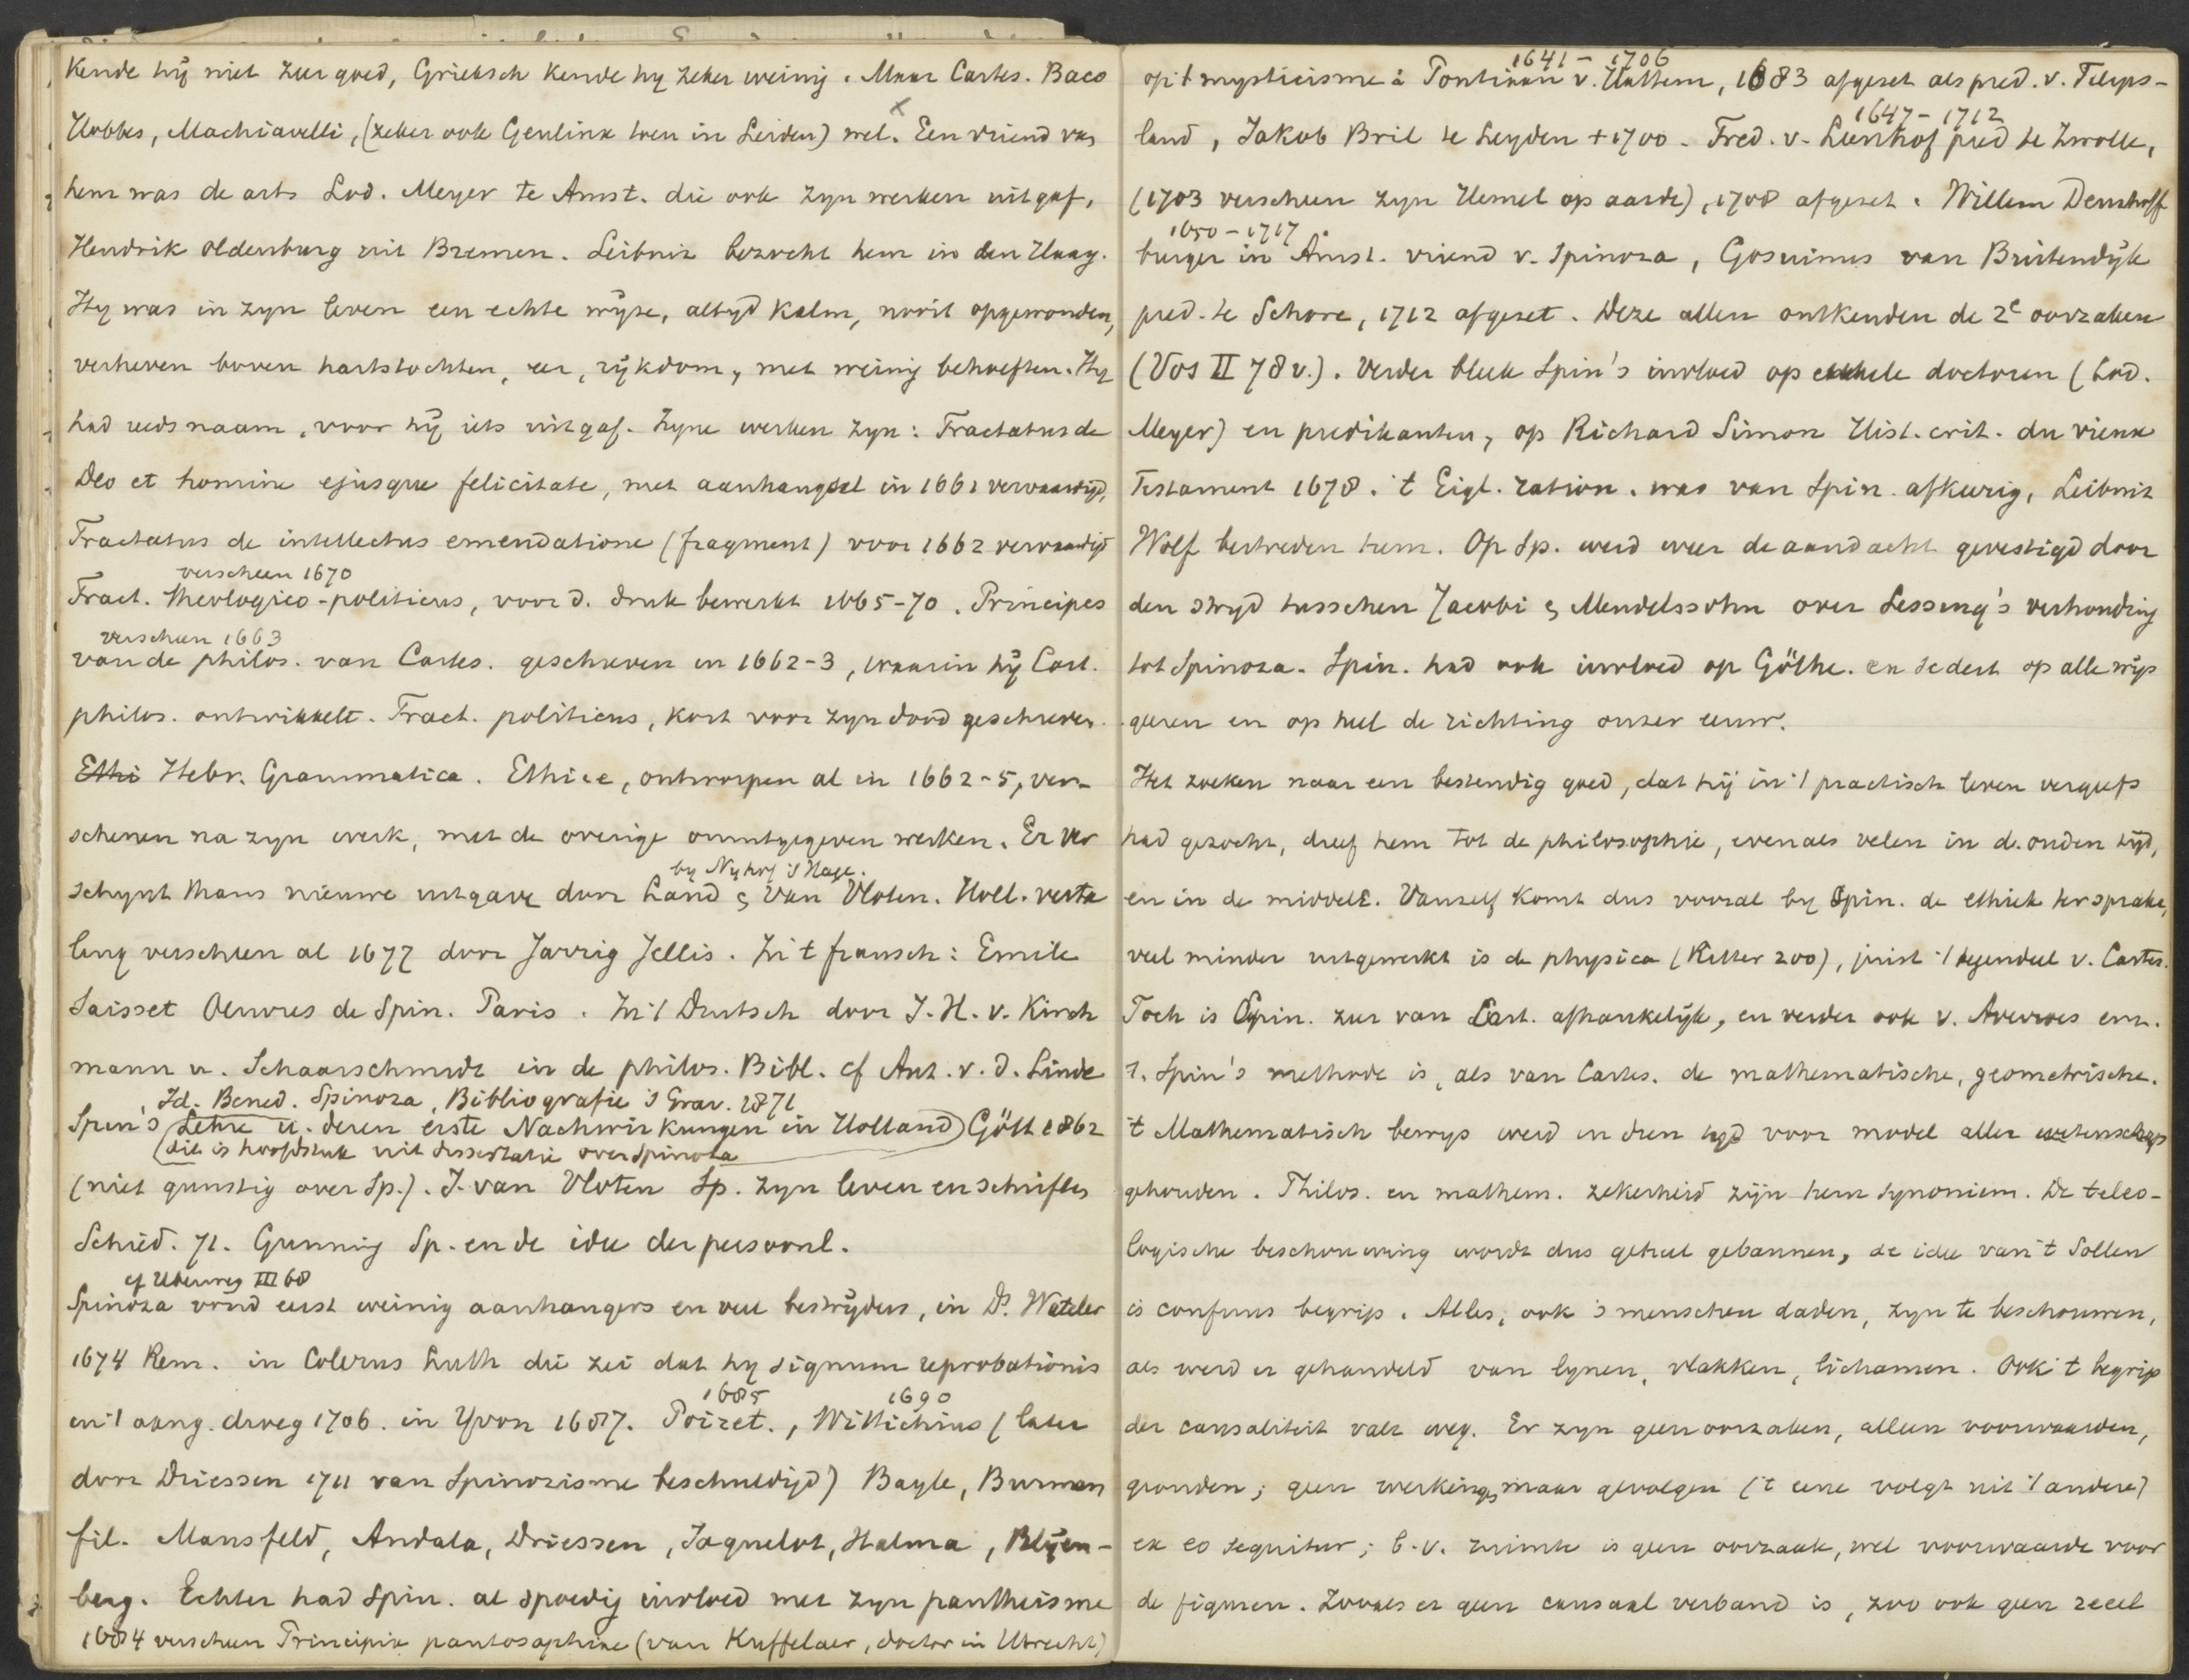 Kende hij niet zeer goed, Grieksch kende hy zeker weinig. Maar Cartes. Baco
x
Hobbes, Machiavelli, (zeker ook Geulinx toen in Leiden) wel. Een vriend van
hem was de arts Lod. Meyer te Amst. die ook zyn werken uitgaf,
Hendrik Oldenburg uit Bremen. Leibniz bezocht hem in den Haag.
Hy was in zyn leven een echte wijze, altyd kalm, nooit opgewonden,
verheven boven hartstochten, eer, rijkdom, met weinig behoeften. Hy
had reeds naam, voor hij iets uitgaf. Zyne werken zyn: Tractatus de
Deo et homine ejusque felicitate, met aanhangsel in 1661 vervaardigd,
Tractatus de intellectus emendatione (fragment) voor 1662 vervaardigd
verscheen 1670
Tract. theologico-politicus, voor d. druk bewerkt 1665-70. Principes
verscheen 1663
van de philos. van Cartes. geschreven in 1662-3, waarin hij Cart.
philos. ontwikkelt. Tract. politicus, kort voor zyn dood geschreven.
Ethi Hebr. Grammatica. Ethice, ontworpen al in 1662-5, ver-
schenen na zyn werk, met de overige onuitgegeven werken. Er ver
by Nyhof 's Hage.
schynt thans nieuwe uitgave door Land & Van Vloten. Holl. verta
ling verscheen al 1677 door Jarrig Jellis. In 't fransch: Emile
Saisset Oeuvres de Spin. Paris. In 't Duitsch door J. H. v. Kirch
mann u. Schaarschmidt in de philos. Bibl. cf Ant. v. d. Linde
Id. Bened. Spinoza, Bibliografie 's Grav. 1871
Spin's Lehre u. deren erste Nachwirkungen in Holland Gött 1862
(dit is hoofdstuk uit dissertatie over Spinoza
(niet gunstig over Sp.). J. van Vloten Sp. zyn leven en schriften
Schied. 71. Gunning Sp. en de idee der persoonl.
cf Ueberweg III 68
Spinoza vond eerst weinig aanhangers en veel bestrijders, in Ds. Wateler
1674 Rem. in Colerus Luth die zei dat hy signum reprobationis
in 't aang. droeg 1706. in Yvon 1687. Poiret., Wittichius (later
1685 1690
door Driessen 1711 van Spinozisme beschuldigd) Bayle, Burman
fil. Mansfeld, Andala, Driessen, Jaquelot, Halma, Blijen-
berg. Echter had Spin. al spoedig invloed met zyn pantheisme
1684 verscheen Principia pantosophiae (van Kuffelaer, doctor in Utrecht)
1641 - 1706
op 't mysticisme à Pontiaan v. Hattem, 1683 afgezet als pred. v. Filips-
1647 - 1712
land, Jakob Bril te Leyden + 1700. Fred. v. Leenhof pred te Zwolle,
(1703 verscheen zyn Hemel op aarde), 1708 afgezet. Willem Deurhoff
1650 - 1717
burger in Amst. vriend v. Spinoza, Gosuinus van Buitendijk
pred. te Schore, 1712 afgezet. Deze allen ontkenden de 2e oorzaken
(Vos II 78 v.). Verder bleek Spin's invloed op enkele doctoren (Lod.
Meyer) en predikanten, op Richard Simon Hist. crit. du vieux
Testament 1678. 't Eigl. ration. was van Spin. afkeerig, Leibniz
Wolf bestreden hem. Op Sp. werd weer de aandacht gevestigd door
den stryd tusschen Jacobi & Mendelssohn over Lessing's verhouding
tot Spinoza. Spin. had ook invloed op Göthe. en sedert op alle wijs
geeren en op heel de richting onzer eeuw.
Het zoeken naar een bestendig goed, dat hij in 't practisch leven vergeefs
had gezocht, dreef hem tot de philosophie, evenals velen in d. ouden tijd,
en in de middelE. Vanzelf komt dus vooral by Spin. de ethiek ter sprake,
veel minder uitgewerkt is de physica (Ritter 200), juist 't tegendeel v. Cartes.
Toch is Spin. zeer van Cart. afhankelijk, en verder ook v. Averroes enz.
1. Spin's methode is, als van Cartes. de mathematische, geometrische.
't Mathematisch bewys werd in dien tyd voor model aller wetenschap
gehouden. Philos. en mathem. zekerheid zijn hem synoniem. De teleo-
logische beschouwing wordt dus geheel gebannen, de idee van 't Sollen
is confuus begrip. Alles, ook 's menschen daden, zyn te beschouwen,
als werd er gehandeld van lynen, vlakken, lichamen. Ook 't begrip
der causaliteit valt weg. Er zyn geen oorzaken, alleen voorwaarden,
gronden; geen werkingen, maar gevolgen ('t eene volgt uit 't andere)
ex eo sequitur; b.v. ruimte is geen oorzaak, wel voorwaarde voor
de figuren. Zooals er geen causaal verband is, zoo ook geen reëel